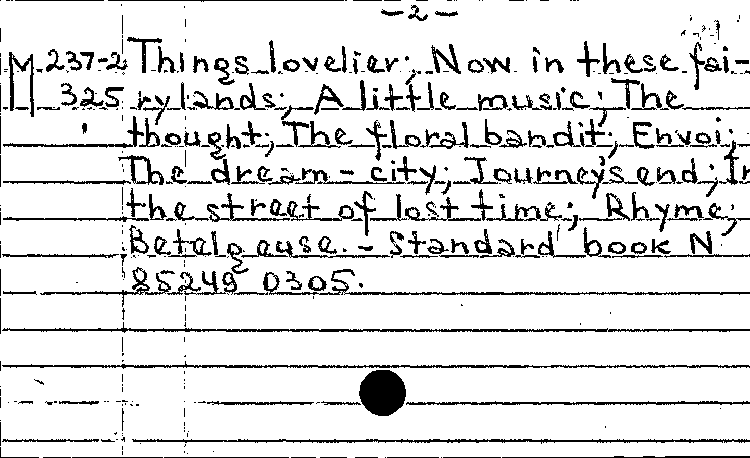 -2-
M 237-2 Things lovelier; Now in these fai-
325 rylands; A little music; The
thought; The floral bandit; Envoi;
The dream-city; Journey's end; In
the street of lost time; Rhyme;
Betelgeuse. - Standard book N
85249 0305.